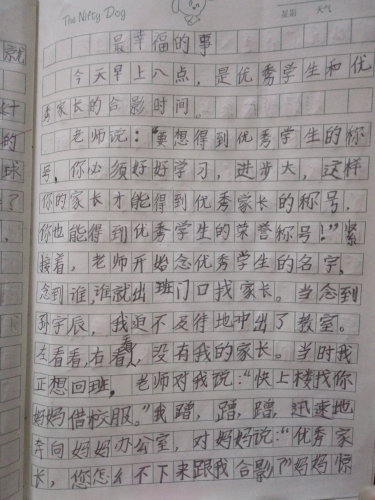 The Nifty Dog
星期 天气
最幸福的事
今天早上八点，是优秀学生和优
秀家长的合影时间。
老师说：“要想得到优秀学生的称
号，你必须好好学习，进步大，这样
你的家长才能得到优秀家长的称号，
你也能得到优秀学生的荣誉称号！”紧
接着，老师开始念优秀学生的名字，
念到谁，谁就出班门口找家长。当念到
孙宇辰，我迫不及待地冲出了教室。
左看看，右看看，没有我的家长。当时我
正想回班，老师对我说：“快上楼找你
妈妈借校服。”我蹭，蹭，蹭，迅速地
奔向妈妈办公室，对妈妈说：“优秀家
长，您怎么不下来跟我合影？”妈妈惊
就
的
球
了